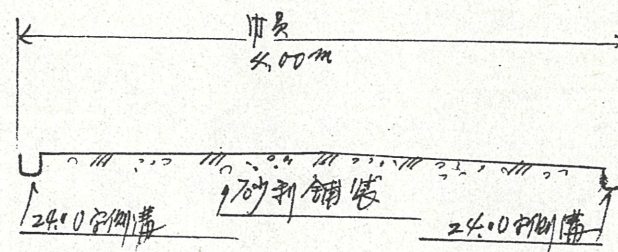 巾員
4.00m
砂利舗装
240U字側溝
240U字側溝